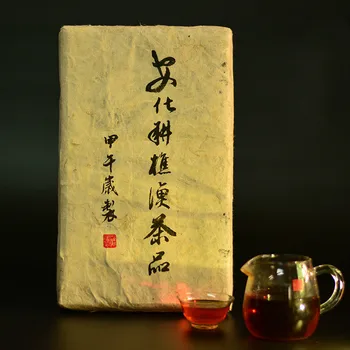 安化耕樵渔茶品
甲午岁製